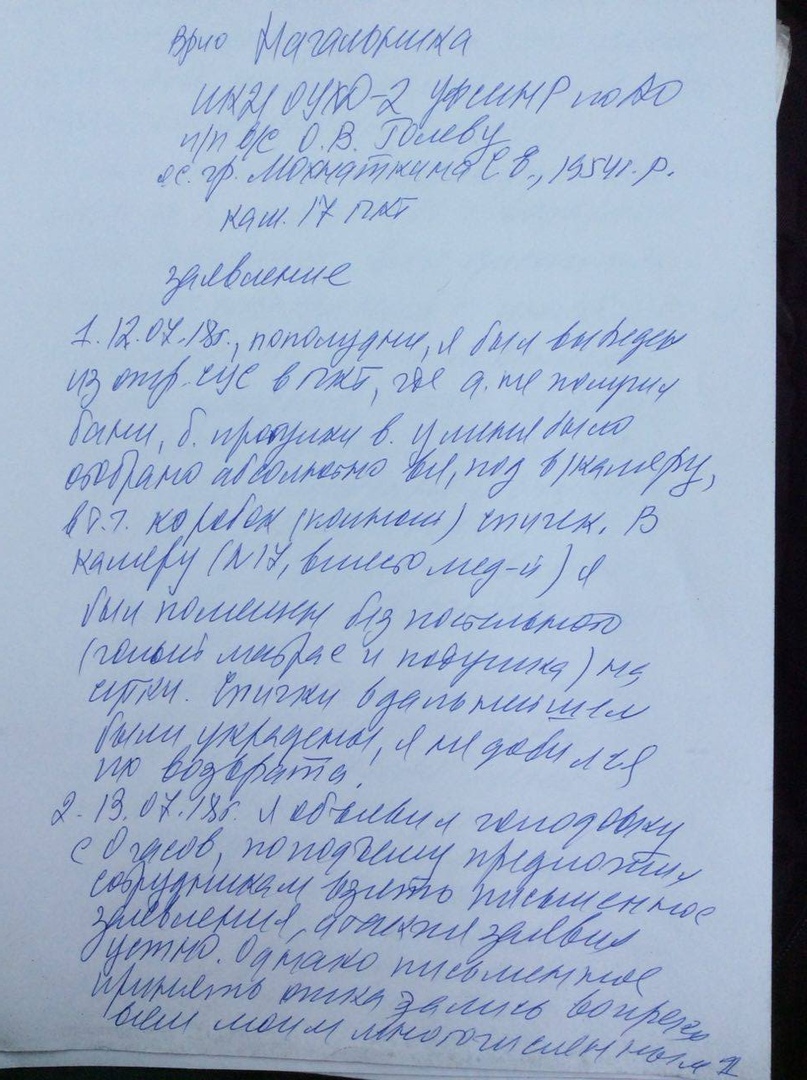 Врио Начальника
ИК21 ОУХД-2 УФСИН Р по АО
п/п в/с О.В. Голеву
ос. гр. Мохнаткина С.Е., 1954 г.р.
кам. 17 ПКТ
заявление
1. 12.07.18г., пополудни, я был выведен
из отр. СУС в ПКТ, где а. не получил
бани, б. прогулки в. у меня было
отобрано абсолютно всё, под в/камеру,
в т.ч. коробок (полный) спичек. В
камеру (N17, вместо мед-й) я
был помещен без постельного
(голый матрас и подушка) на
сутки. Спички в дальнейшем
были украдены, я не добился
их возврата.
2. 13.07.18г. я объявил голодовку
с 0 часов, по подъему предложил
сотрудникам взять письменное
заявления, а также заявил
устно. Однако письменное
принять отказались вопреки
всем моим многочисленным
1